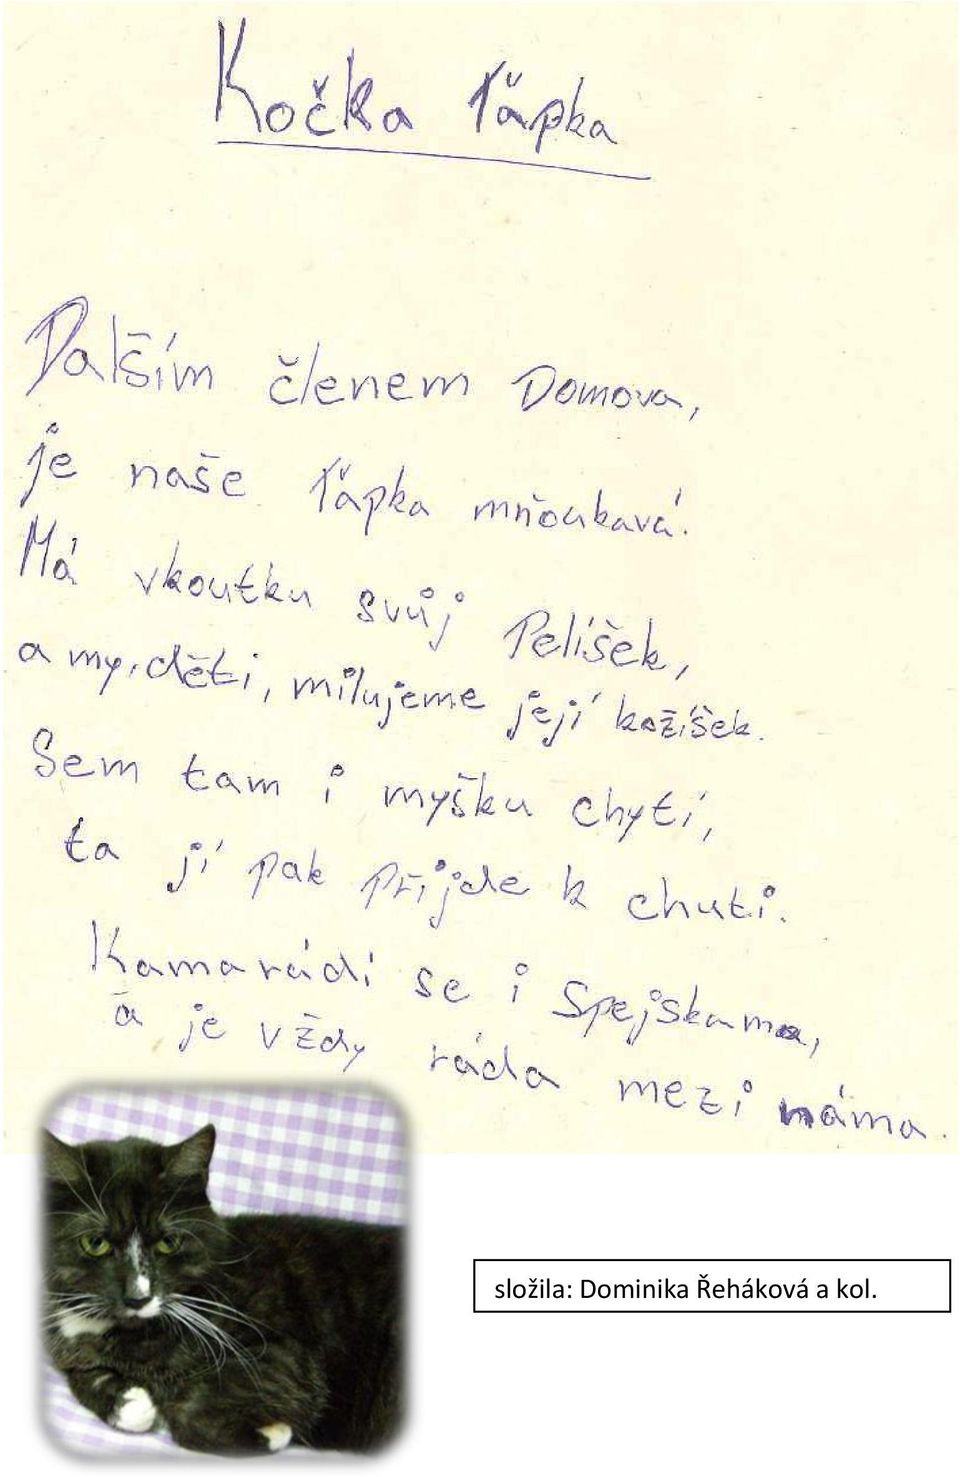 Kočka Ťapka
Dalším členem Domova,
je naše Ťapka mňoukavá.
Má vkoutku svůj Pelíšek,
a my, děti, milujeme její kožíšek.
Sem tam i myšku chytí,
ta jí pak přijde k chuti.
Kamarádí se i Spejskama,
a je vždy ráda mezi náma.
složila: Dominika Řeháková a kol.